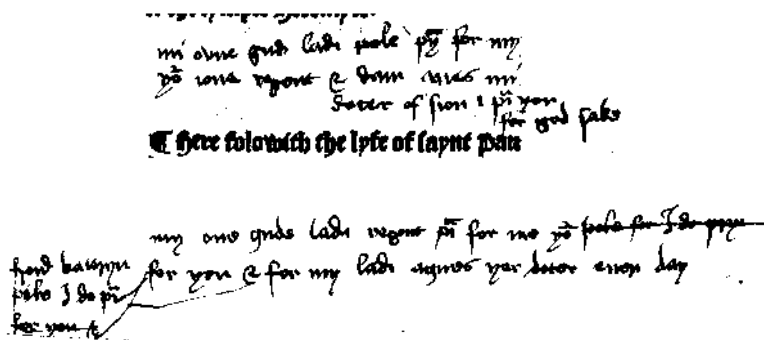 mi owne gud ladi pole p̄y for my
yō ione regent & dam anes mi
doter of sion I p̄i you
for god sake
¶ Here foloweth the lyfe of saynt Pau
my one gude ladi regent p̄i for me yō pole for I do pray
for you & for my ladi agnes yor doter euery day
pole I do p̄i
for you &